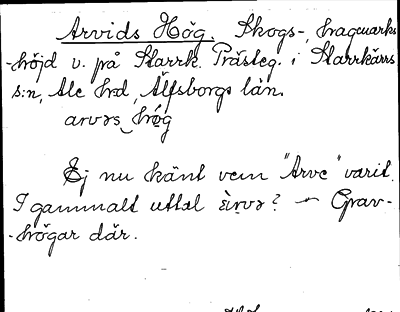 Arvids Hög. Skogs-, hagmarks
-höjd v. på Starrk. Prästeg. i Starrkärrs
s:n, Ale hd, Älfsborgs län.
arvəs hög
Ej nu känt vem "Arve" varit.
I gammalt uttal èrvə? - Grav-
-högar där.